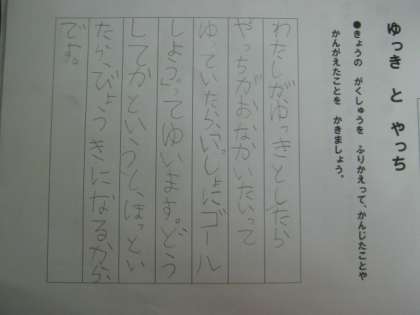 ゆっき と やっち
●きょうの がくしゅうを ふりかえって、かんじたことや
かんがえたことを かきましょう。
わたしがゆっきとしたら
やっちがおなかいたいって
ゆっていたら、「いっしょにゴール
しよう」ってゆいます。どう
してかというと、ほっとい
たら、びょうきになるから
です。